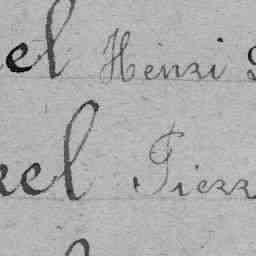 el Henri
el Pierr